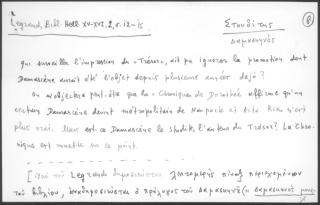 Legrand, Bibl. Hell. XV-XVI, 2, σ. 12-15
Στουδίτης
Δαμασκηνός
qui surveille l'impression du «Trésor», ait pu ignorer la promotion dont
Damascène aurait été l'objet depuis plusieurs années déjà?
on objectera peut-être que la «Chronique de Dorothée affirme qu'un
certain Damascène devint métropolitain de Naupacte et Arta. Rien n'est
plus vrai. Mais est-ce Damascène le studite, l'auteur du Trésor? La Chro-
nique est muette sur ce point.
[ τοῦ Legrand δημοσιεύεται λεπτομερὴς πίναξ περιεχομένων
τοῦ βιβλίου, ἀναδημοσιεύεται ὁ πρόλογος τοῦ Δαμασκηνοῦ («Δαμασκηνὸς